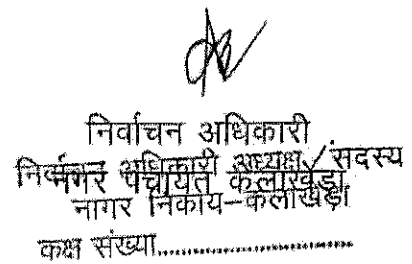 निर्वाचन अधिकारी
निर्वाचन अधिकारी अध्यक्ष/सदस्य
नगर पंचायत केलाखेड़ा
नागर निकाय-केलाखेड़ा
कक्ष संख्या..............................